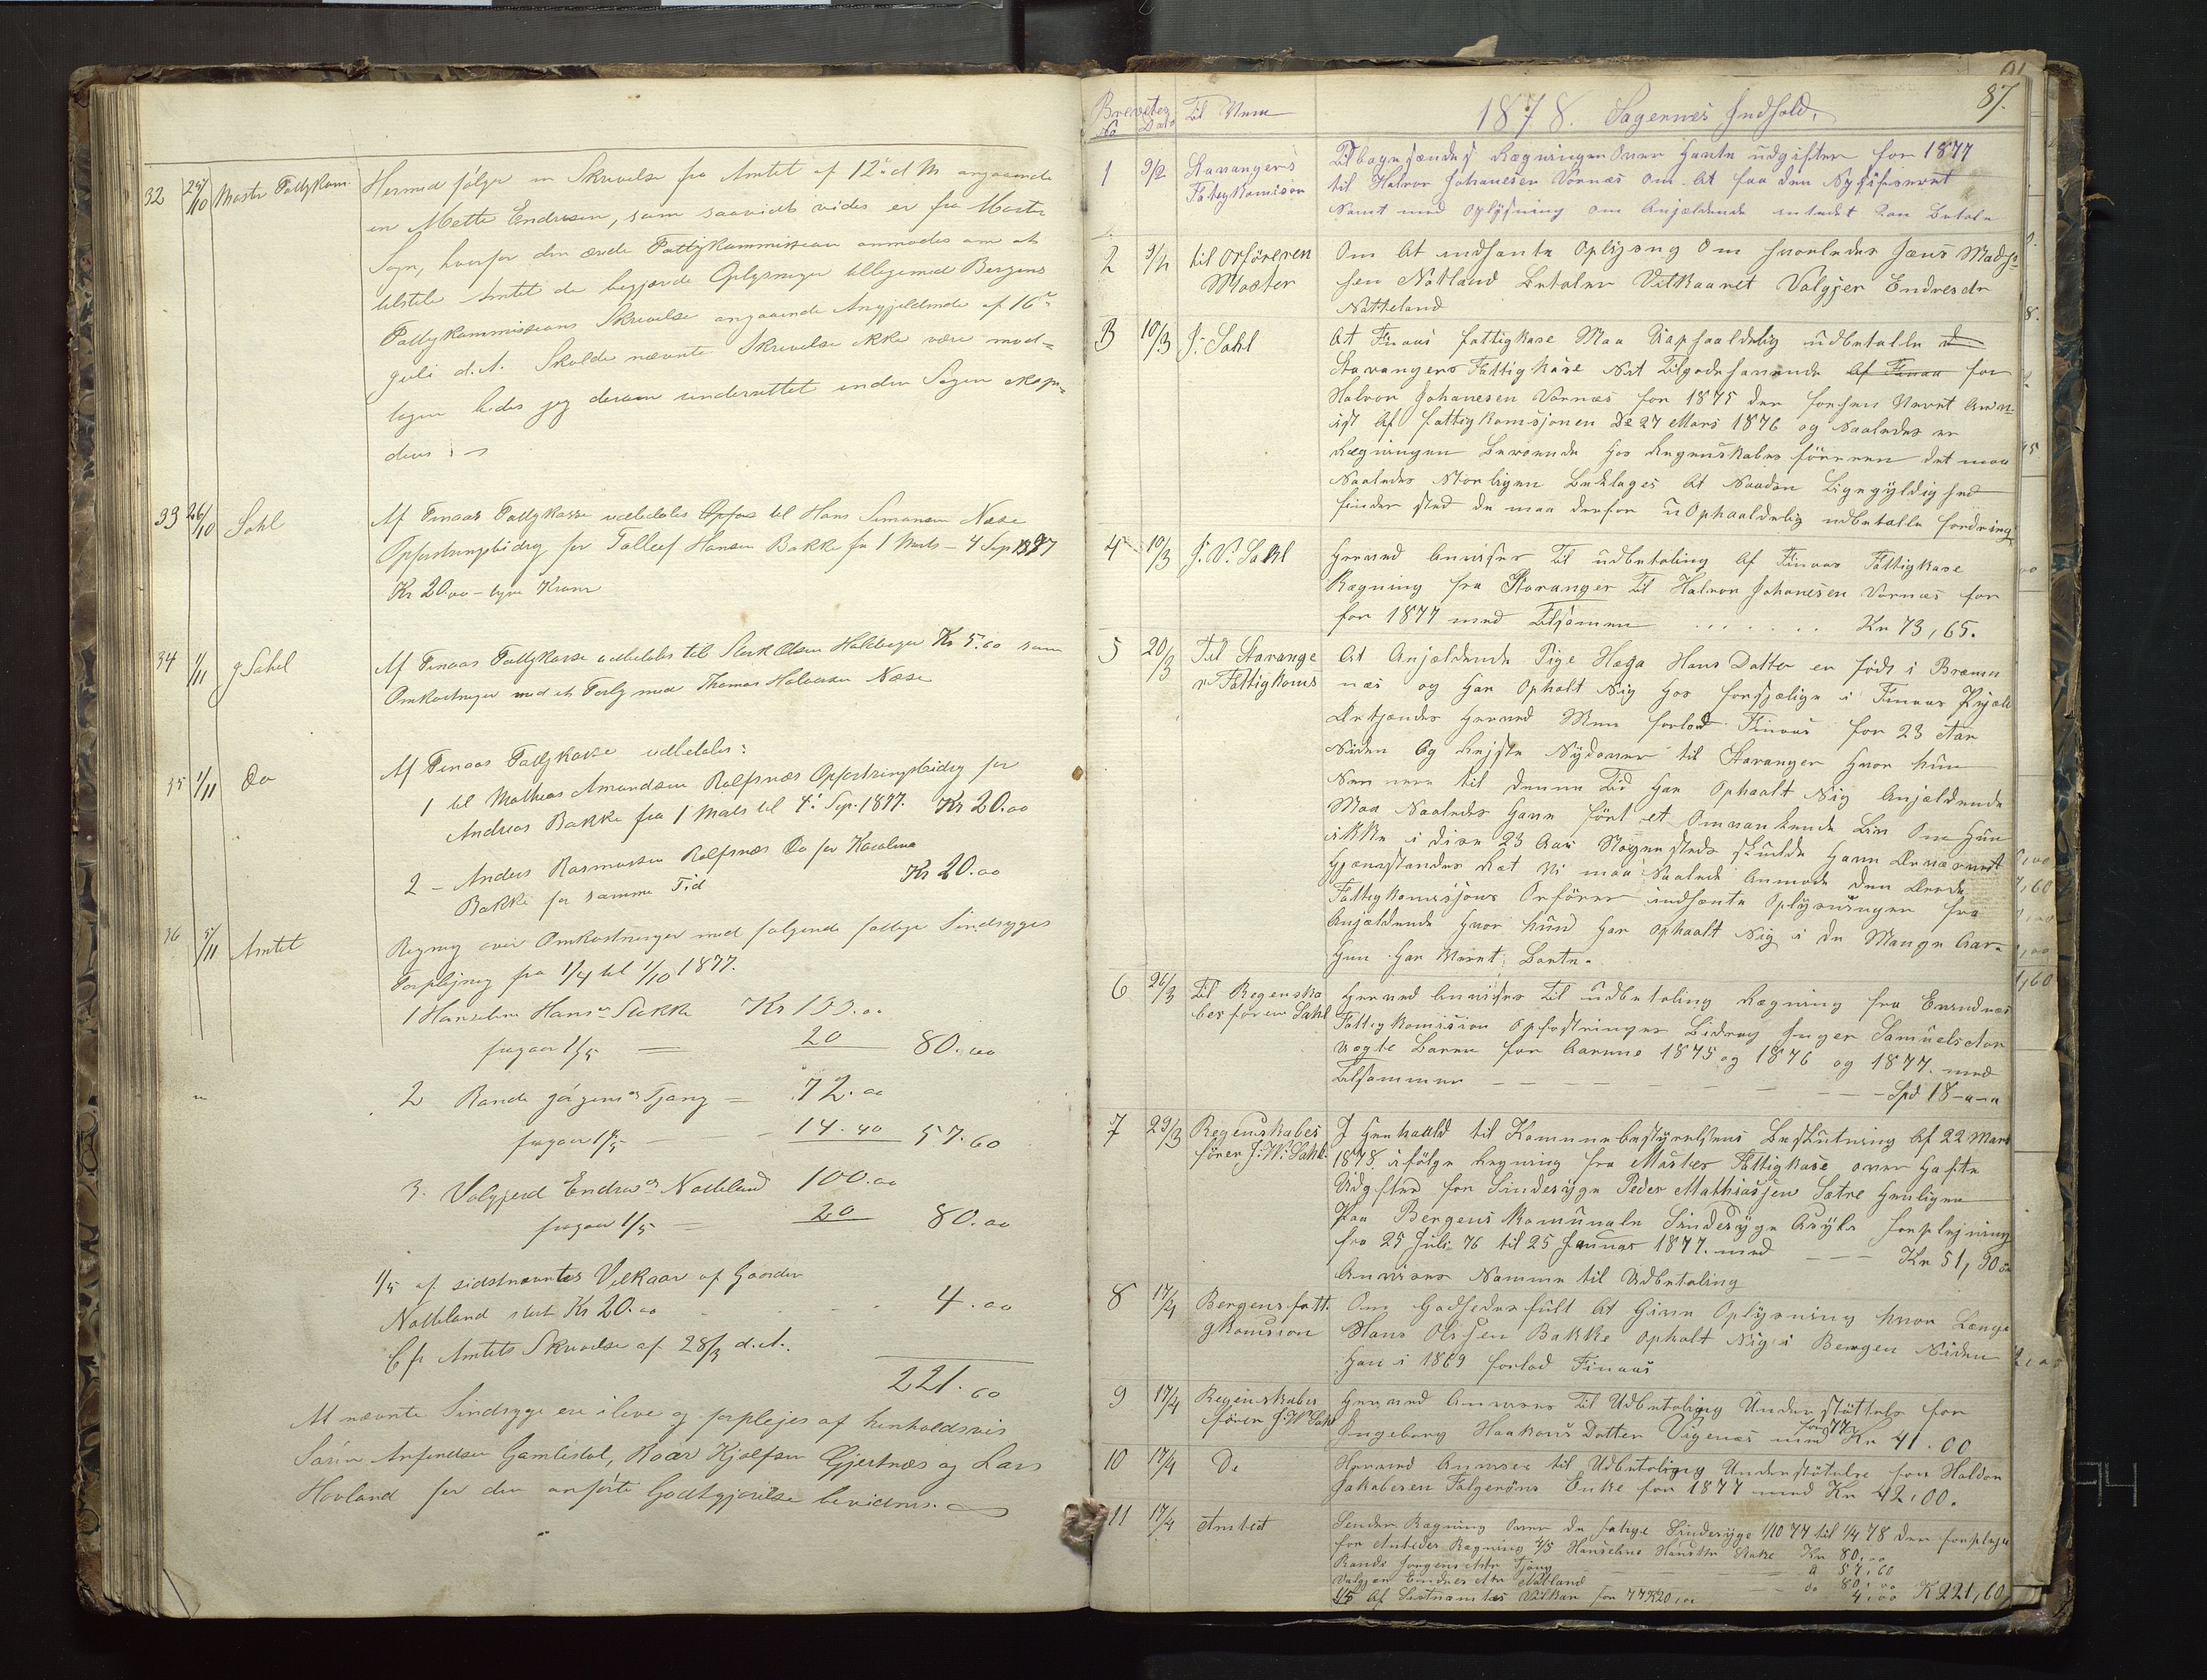 32 29/10 Moster Fattigkom. Hermed følger en Skrivelse fra Amtet af 12te d M angaaende
en Mette Endresen, som saavidt vides er fra Moster
Sogn, hvorfor den ærede Fattigkommission anmodes om at
tilstille Amtet de begjærede Oplysninger tilligemed Bergens
Fattigkommissions Skrivelse angaaende Angjeldende af 16de
Juli d.A. Skulde nævnte Skrivelse ikke være mod=
tagen bedes jeg derom underrettet inden Sagen expe=
deres
33 26/10 Sahl Af Finaas Fattigkasse udbetales til Hans Simonsen Næse
Opfostringsbidrag for Tollef Hansen Bakke fra 1 Marts - 4 Sep 1877
Kr 20.00 - tyve Kroner
34 1/11 J Sahl Af Finaas Fattigkasse udbetales til Kr 5.60 som
Omkostninger med et Forlig med Thomas Halvorsen Næse
35 1/11 Do Af Finaas Fattigkasse udbetales:
1 til Mathias Amundsen Rolfsnæs Opfostringsbidrag for
Andreas Bakke fra 1 Marts til 4. Sep. 1877. Kr 20.00
2 - Anders Rasmussen Rolfsnæs Do for Karolina
Bakke for samme Tid Kr 20.00
36 5/11 Amtet Regning over Omkostninger med følgende fattige Sindsyges
Forplejning fra 1/4 til 1/10 1877.
1 Hanseline Hansdr Stekke Kr 100.00
fragaar 1/5 — 20 80.00
2 Rande Jørgensdr Tjong — 72.00
fragaar 1/5 — 14.40 57.60
3. Valgjerd Endresdr Notteland 100.00
fragaar 1/5 — 20 80.00
1/5 af sidstnævntes Vilkaar af Gaarden
Notteland stort Kr 20.00 4.00
Cfr Amtets Skrivelse af 28/3 d.A.
221.60
At nævnte Sindsyge ere ilive og forplejes af henholdsvis
Søren Anfindsen Gamlestøl, Roar Kjelsen Gjertnæs og Lars
Hovland for den anførte Godtgjørelse bevidnes.
87.
Brevets No Dato Til Hvem 1878. Sagernes Indhold.
1 9/2 Stavangers Fatigkomision Tilbagesendes Rægningen Over Havte udgifter for 1877
til Halvor Johanesen Vornæs om at faa den
Samt med Oplysning om Anjældende intedet kan Betale
2 9/2 til Orföreren Moster Om At indhente Oplysng Om hvorledes Jens Mads
sen Notland Betaler Vilkaaret Valgjer Endresdr
Natteland
3 10/3 J. Sahl At Finaas fattigkase Maa Uophaaldelig udbetalle
Stavangers Fattigkase Sit Tilgodehavende Af Finaa for
Halvor Johanesen Vornæs for 1875 den forhen Været Anv
ist Af fattigkomsjonen De 27 Mars 1876 og Saaledes er
Rægningen Beroende Hos Regenskabs föreren det maa
Saaledes Storligen Beklages At Saadan Ligegyldighed
finder sted De maa derfor uOphaaldelig udbetalle fordring
4 10/3 J. W. Sahl Hermed Anvises Til udbetaling Af Finaas Fattigkase
Rægning fra Stavanger Til Halvor Johanesen Vornæs for
for 1877 med Tilsamen . . . . . . Kr 73,65.
5 20/3 Til Stavange r Fattigkoms At Anjældende Pige Haga Hans Datter er föds i Bræm
næs og Har Ophalt Sig Hos forsjælige i Finaas
Hermed Men forlod Finaas for 23 Aar
Siden Og Rejste Sydover til Stavanger Hvor hun
til denne Tid Har Ophaalt Sig Anjældende
Maa Saaledes Have fört et Omvankende Liv Om Hun
ikke i dise 23 Aar Nogensteds skulde Have Ærværvet
Hjemstavnds Ret Vi maa Saalede Anmode den Ærede
Fattigkomisjons Orförer indhente Oplysninger fra
Anjældende Hvor hund Har Ophaalt Sig i De Mange Aar
Hun Har Været Borte.
6 26/3 Til Regenska bes förer Sahl Hermed Anvises Til udbetaling Rægning fra
Fattigkomision Opfostringes Bidrag Inger Samuelsdter
uægte Barn for Aarene 1875 og 1876 og 1877. med
Tilsammen — — — — — — Spd 18-"-"
7 29/3 Regenskabes förer J: W: Sahl. I Henhaald til Komunebestyrelsens Beslutning Af 22 Mars
1878. i fölge Regning fra Mosters Fattigkase over Hafte
Udgifter for Sindesyge Peder Mathiassen Sætre Henligen
Paa Bergens Komunale Sindesyge Asyls forplejning
fra 25 Juli 76 til 25 Januar 1877. med — — — Kr 51,90
Anvises Samme til Udbetaling
8 17/4 Bergens fatt gkomision Om Godhedesfult At Give Oplysning hvor Længe
Hans Olsen Bakke Opholt Sig i Bergen Siden
Han i 1869 forlod Finaas
9 17/4 Regenskabs förer J. W Sahl Hermed Anvises Til Udbetaling Understöttelse for
Ingeborg Haakons Datter Vigenæs for 77 med Kr 41.00
10 17/4 Do Hermed Anvises til Udbetaling Understötelse for Haldor
Jakabesen Folgeröns Enke for 1877 med Kr 42,00.
11 17/4 Amted Sender Rægning Over De fatige Sindesyge 1/10 77 til 1/4 78 den forpleje
for Amtedes Rægning 4/5 Hanseline Hansdtr Stake Kr 80,00
Rande Jörgensdtr Tjong — — — " 57,60
Valgjer Endresdtr Natland — — — do 80,00
1/5 Af Sistnævntes Vilkar for 77 K20,00 4,00 K 221,60